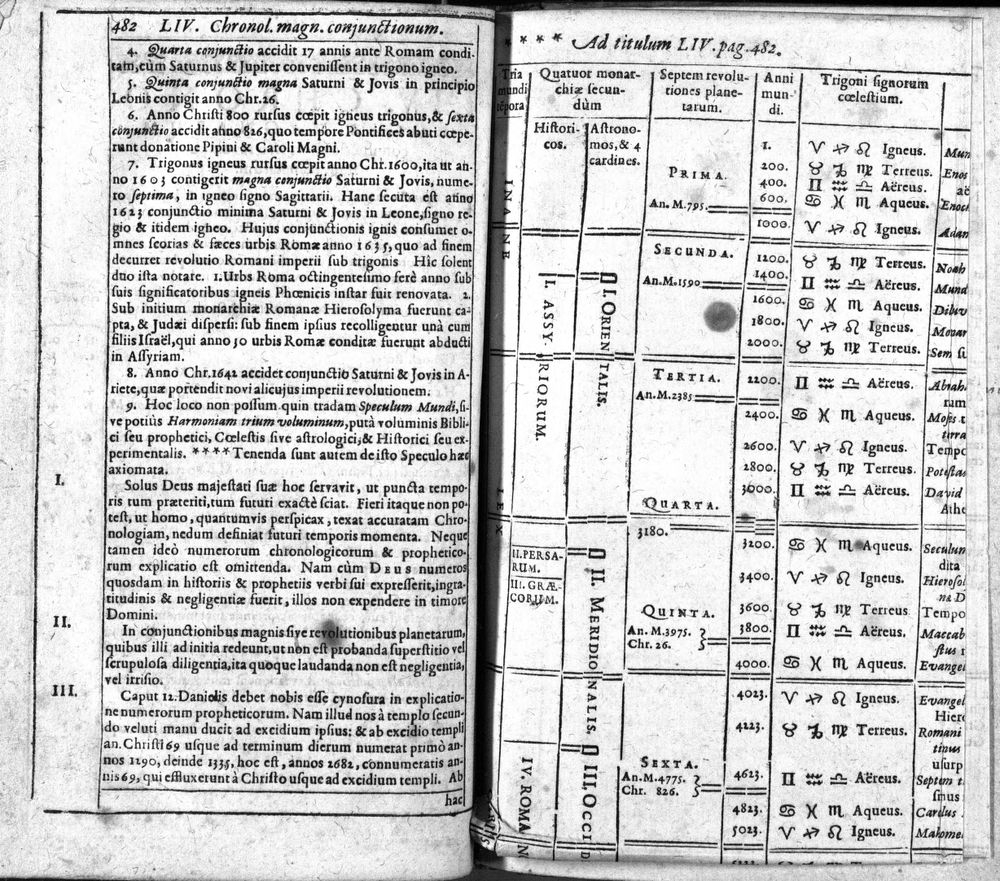 482 LIV. Chronol. magn. conjunctionum.
4. Quarta conjunctio accidit 17 annis ante Romam condi-
tam, cùm Saturnus & Jupiter convenissent in trigono igneo.
5. Quinta conjunctio magna Saturni & Jovis in principio
Leonis contigit anno Chr. 26.
6. Anno Christi 800 rursus cœpit igneus trigonus, & sexta
conjunctio accidit anno 826, quo tempore Pontifices abuti cœpe-
runt donatione Pipini & Caroli Magni.
7. Trigonus igneus rursus cœpit anno Chr. 1600, ita ut an-
no 1603 contigerit magna conjunctio Saturni & Jovis, nume-
ro septima, in igneo signo Sagittarii. Hanc secuta est anno
1623 conjunctio minima Saturni & Jovis in Leone, signo re-
gio & itidem igneo. Hujus conjunctionis ignis consumet o-
mnes scorias & fæces urbis Romæ anno 1635, quo ad finem
decurret revolutio Romani imperii sub trigonis Hic solent
duo ista notare. 1. Urbs Roma octingentesimo ferè anno sub
suis significatoribus igneis Phœnicis instar fuit renovata. 2.
Sub initium monarchiæ Romanæ Hierosolyma fuerunt ca-
pta, & Judæi dispersi: sub finem ipsius recolligentur unà cum
filiis Israël, qui anno 30 urbis Romæ conditæ fuerunt abducti
in Assyriam.
8. Anno Chr. 1642 accidet conjunctio Saturni & Jovis in A-
riete, quæ portendit novi alicujus imperii revolutionem.
9. Hoc loco non possum quin tradam Speculum Mundi, si-
ve potiùs Harmoniam trium voluminum, putà voluminis Bibli-
ci seu prophetici, Cœlestis sive astrologici, & Historici seu ex-
perimentalis. **** Tenenda sunt autem de isto Speculo hæc
axiomata.
I.
Solus Deus majestati suæ hoc servavit, ut puncta tempo-
ris tum præteriti, tum futuri exactè sciat. Fieri itaque non po-
test, ut homo, quantumvis perspicax, texat accuratam Chro-
nologiam, nedum definiat futuri temporis momenta. Neque
tamen ideò numerorum chronologicorum & prophetico-
rum explicatio est omittenda. Nam cùm DEUS numeros
quosdam in historiis & prophetiis verbi sui expresserit, ingra-
titudinis & negligentiæ fuerit, illos non expendere in timore
Domini.
II.
In conjunctionibus magnis sive revolutionibus planetarum,
quibus illi ad initia redeunt, ut non est probanda superstitio vel
scrupulosa diligentia, ita quoque laudanda non est negligentia,
vel irrisio.
III.
Caput 12. Danielis debet nobis esse cynosura in explicatio-
ne numerorum propheticorum. Nam illud nos à templo secun-
do veluti manu ducit ad excidium ipsius; & ab excidio templi
an. Christi 69 usque ad terminum dierum numerat primò an-
nos 1290, deinde 1335, hoc est, annos 2682, connumeratis an-
nis 69, qui effluxerunt à Christo usque ad excidium templi. Ab
hac
**** Ad titulum LIV. pag. 482.
Tria
mundi
tēpora
Quatuor monar-
chiæ secun-
dùm
Septem revolu-
tiones plane-
tarum.
Anni
mun-
di.
Trigoni signorum
cœlestium.
Histori-
cos.
Astrono-
mos, & 4
cardines.
INANE
LEX
I. ASSYRIORUM.
II. PERSA-
RUM.
III. GRÆ-
CORUM.
IV. ROMAN
I. ORIENTALIS.
II. MERIDIONALIS.
III. OCCID
PRIMA.
An. M. 795.
SECUNDA.
An. M. 1590
TERTIA.
An. M. 2385
QUARTA.
3180.
QUINTA.
An. M. 3975.
Chr. 26.
SEXTA.
An. M. 4775.
Chr. 826.
1. ♈ ♐ ♌ Igneus. Mun
200. ♉ ♑ ♍ Terreus. Enos
400. ♊ ♒ ♎ Aëreus. aë
600. ♋ ♓ ♏ Aqueus. Enoch
1000. ♈ ♐ ♌ Igneus. Adan
1200. ♉ ♑ ♍ Terreus. Noah
1400. ♊ ♒ ♎ Aëreus. Mund
1600. ♋ ♓ ♏ Aqueus. Diluv
1800. ♈ ♐ ♌ Igneus. Monar
2000. ♉ ♑ ♍ Terreus. Sem su
2200. ♊ ♒ ♎ Aëreus. Abrah
rum
2400. ♋ ♓ ♏ Aqueus. Moses
terra
2600. ♈ ♐ ♌ Igneus. Tempo
2800. ♉ ♑ ♍ Terreus. Potestas
3000. ♊ ♒ ♎ Aëreus. David
Athe
3200. ♋ ♓ ♏ Aqueus. Seculun
dita
3400. ♈ ♐ ♌ Igneus. Hierosol
næ D
3600. ♉ ♑ ♍ Terreus Tempo
3800. ♊ ♒ ♎ Aëreus. Maccab
stus
4000. ♋ ♓ ♏ Aqueus. Evangel
4023. ♈ ♐ ♌ Igneus. Evangel
Hiero
4223. ♉ ♑ ♍ Terreus. Romani
tinus
usurp
4623. ♊ ♒ ♎ Aëreus. Septem t
simus
4823. ♋ ♓ ♏ Aqueus. Carolus
5023. ♈ ♐ ♌ Igneus. Mahomet